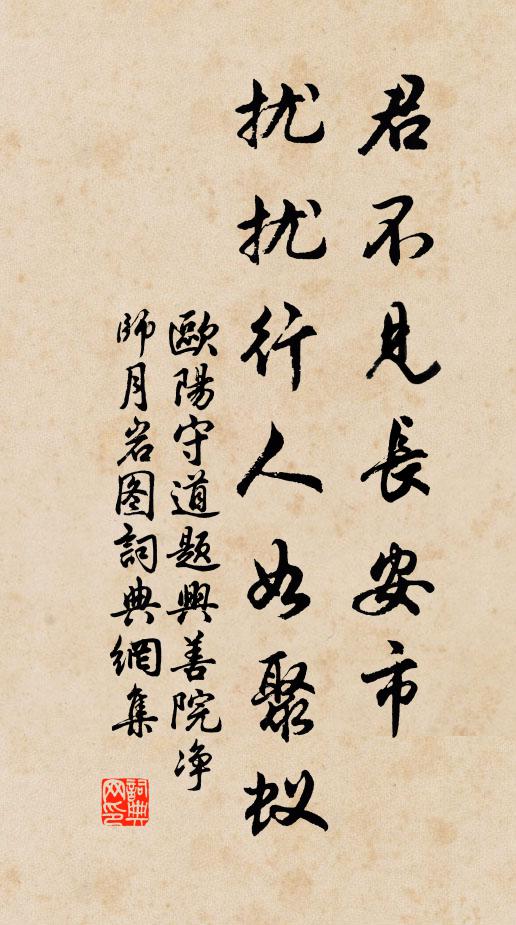 君不見長安市
扰扰行人如聚蚁
歐陽守道題興善院净
師月岩图詞典網集
詞典网印